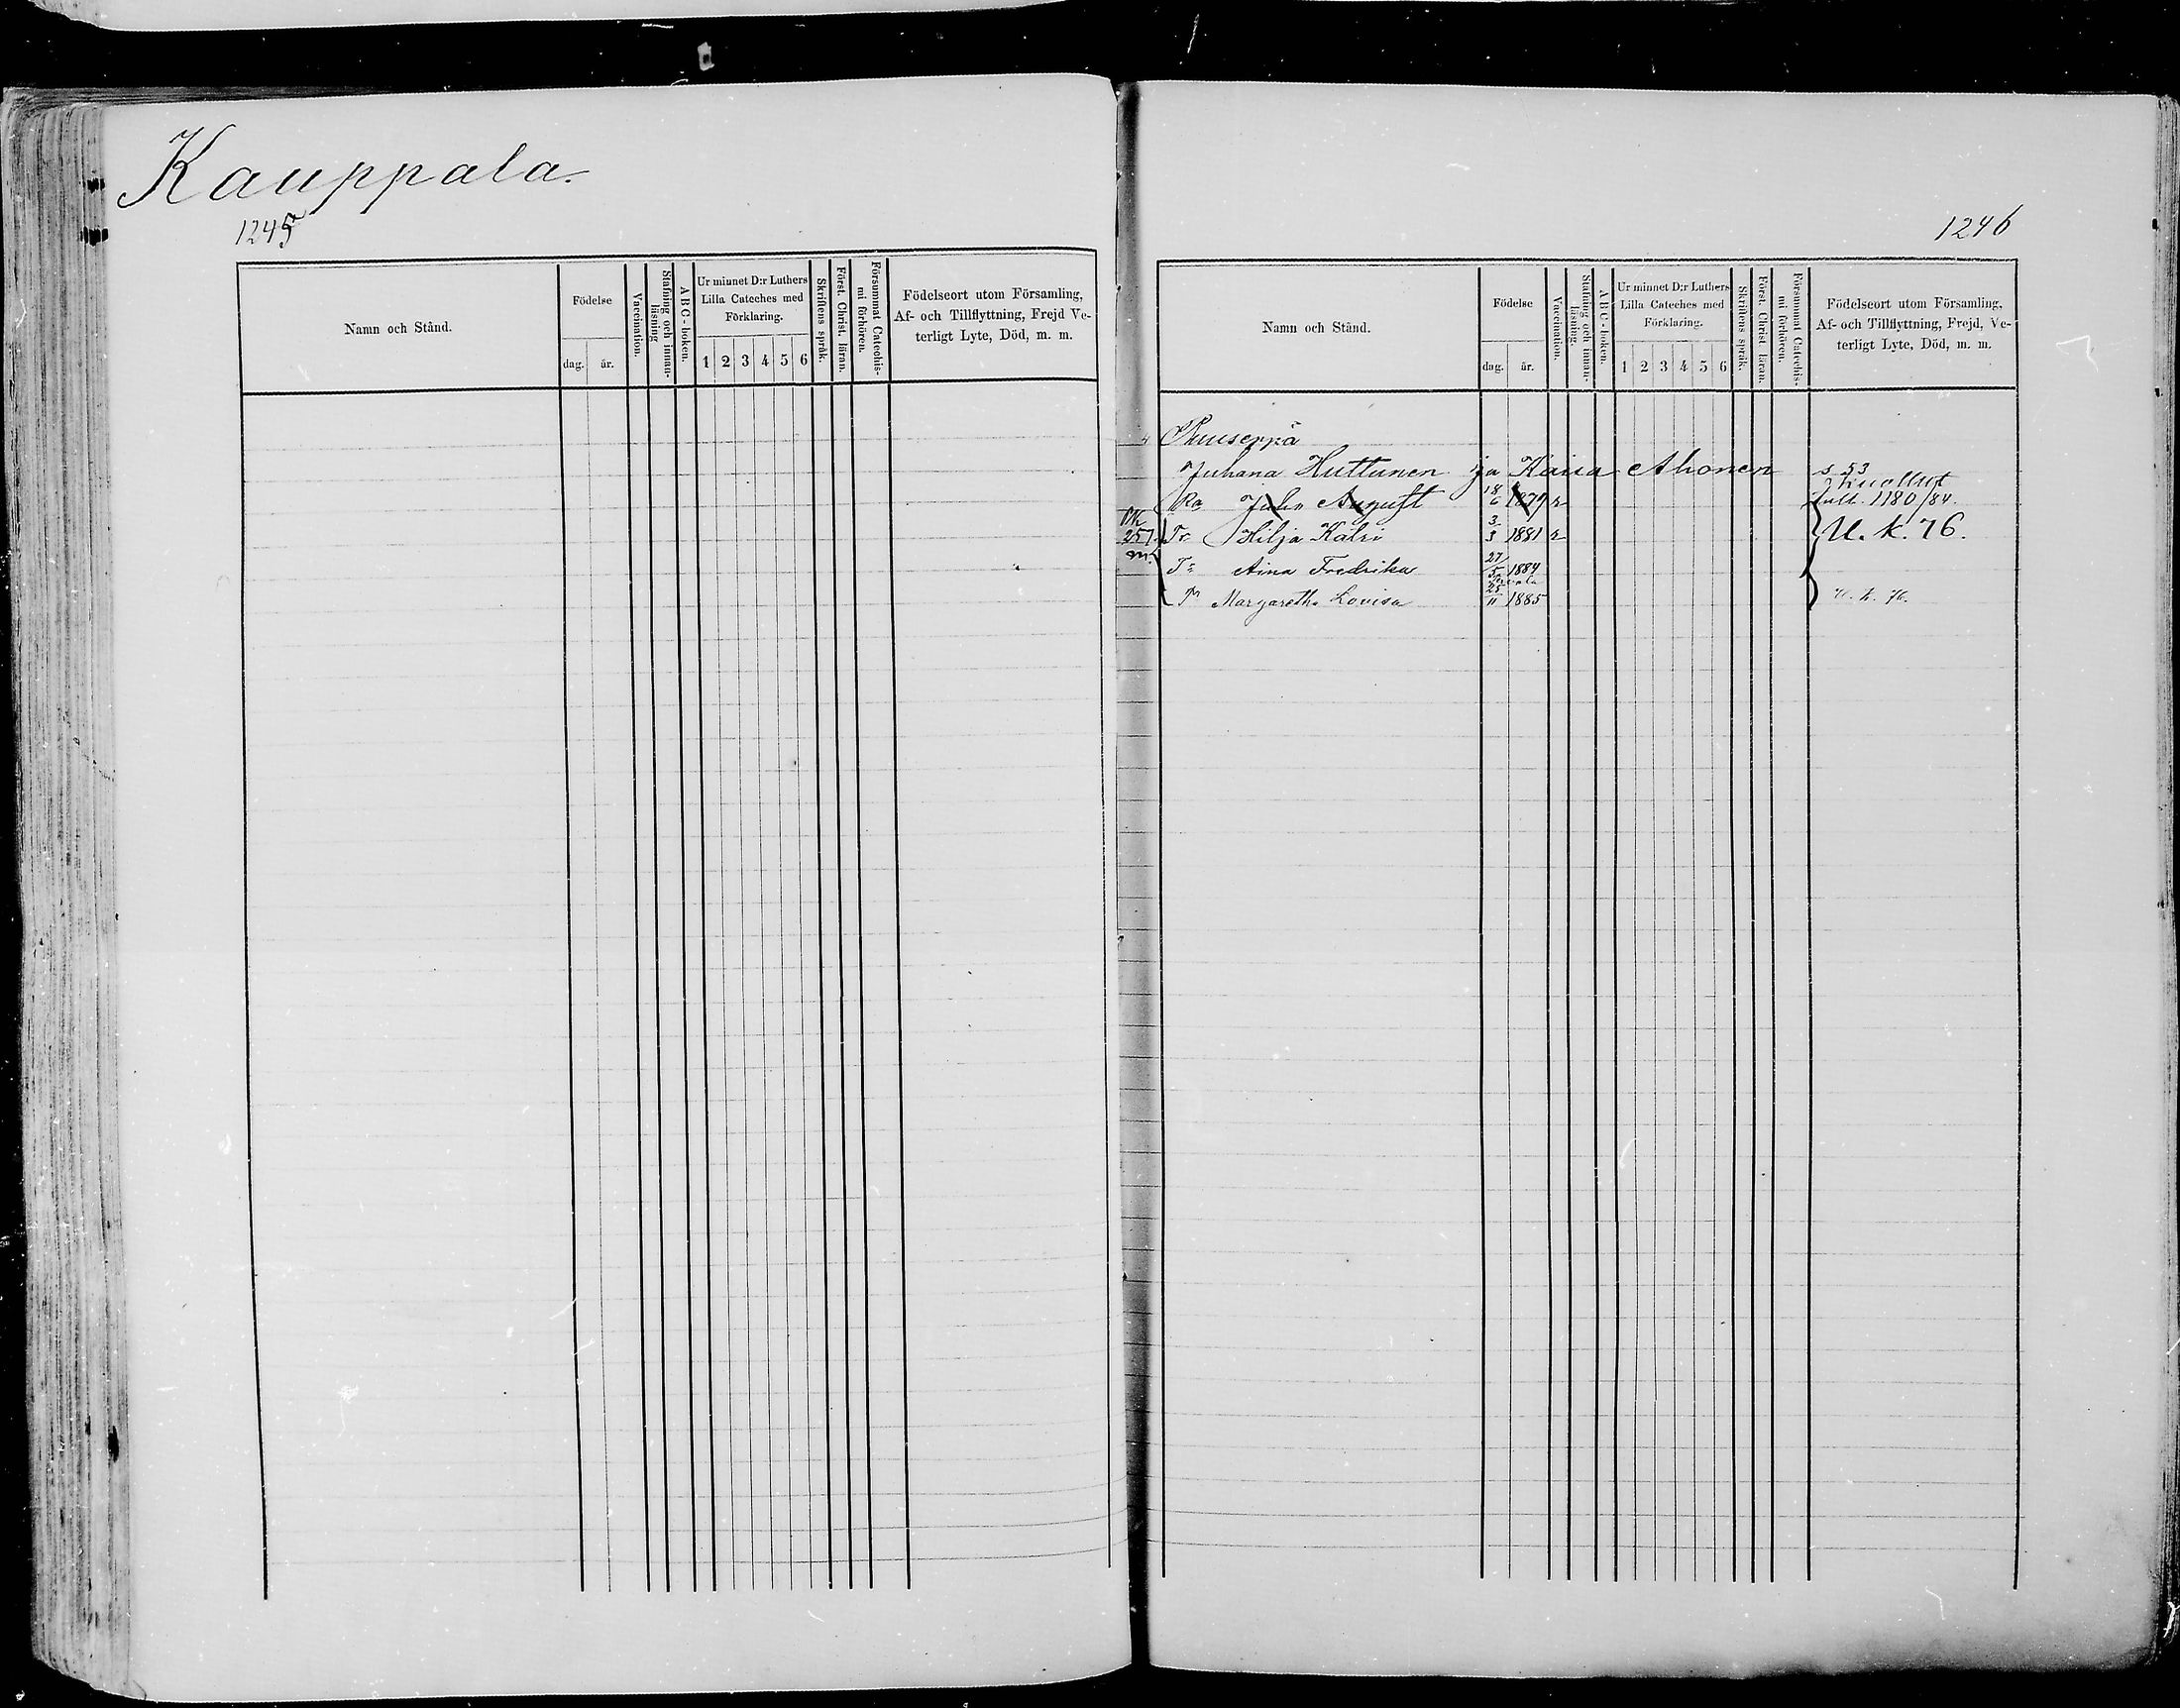 Kauppala
1245
Namn och Stånd.
Födelse
dag.
år.
Vaccination.
Stafning och innan-
läsning
A B C - boken.
Ur minnet D:r Luthers
Lilla Cateches med
Förklaring.
1 2 3 4 5 6
Skriftens språk.
Först. Christ. läran.
Försummat Catechis-
mi förhören.
Födelseort utom Församling,
Af- och Tillflyttning, Frejd Ve-
terligt Lyte, Död, m. m.
1246
Namn och Stånd.
Födelse
dag.
år.
Vaccination.
Stafning och innan-
läsning.
A B C - boken.
Ur minnet D:r Luthers
Lilla Cateches med
Förklaring.
1 2 3 4 5 6
Skriftens språk.
Först. Christ. läran.
Försummat Catechis-
mi förhören.
Födelseort utom Församling,
Af- och Tillflyttning, Frejd, Ve-
terligt Lyte, Död, m. m.
Puuseppä
Juhana Huttunen ja Kaisa Ahonen s 53
Po Juho August 18/6 1879 r kuollut 1180/84.
257 Tr Hilja Katri 3/3 1881 r U. k. 76.
Tr Aina Fredrika 27/5 1884
Tr Margaretha Lovisa 25/11 1885 U. k. 76.